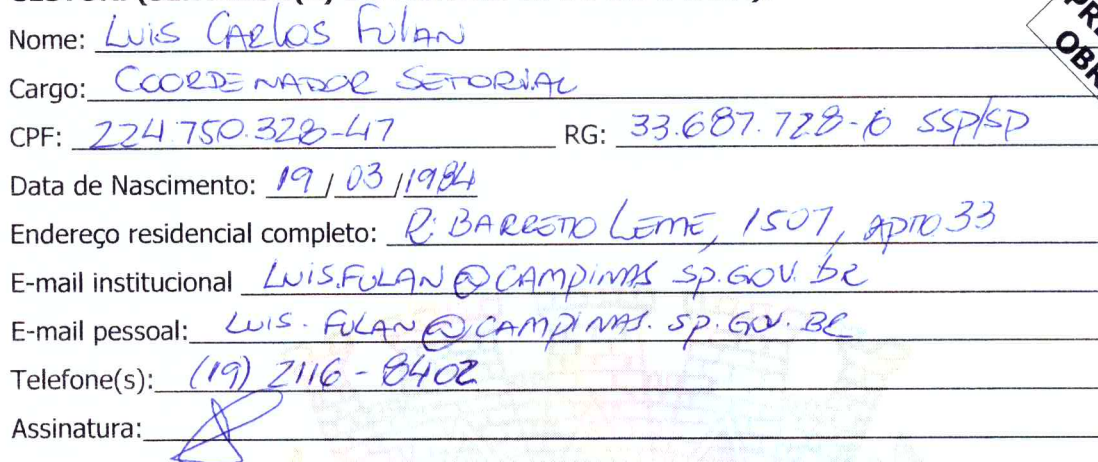 Nome: Luis Carlos Fulan
Cargo: COORDENADOR SETORIAL
CPF: 224.750.328-47 RG: 33.687.728-6 SSP/SP
Data de Nascimento: 19/03/1984
Endereço residencial completo: R: BARRETO LEME, 1507, APTO 33
E-mail institucional LUIS.FULAN@CAMPINAS SP.GOV.br
E-mail pessoal: LUIS.FULAN@CAMPINAS.SP.GOV.BR
Telefone(s): (19) 2116-8402
Assinatura: